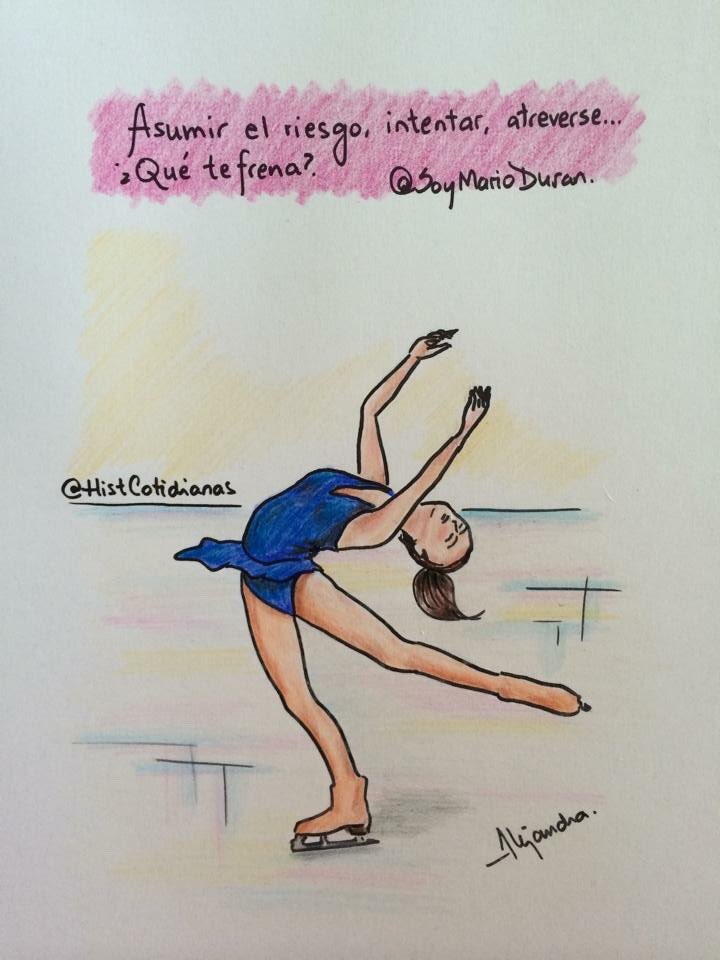 Asumir el riesgo, intentar, atreverse...
¿Qué te frena?. @SoyMarioDuran.
@HistCotidianas
Alejandra.